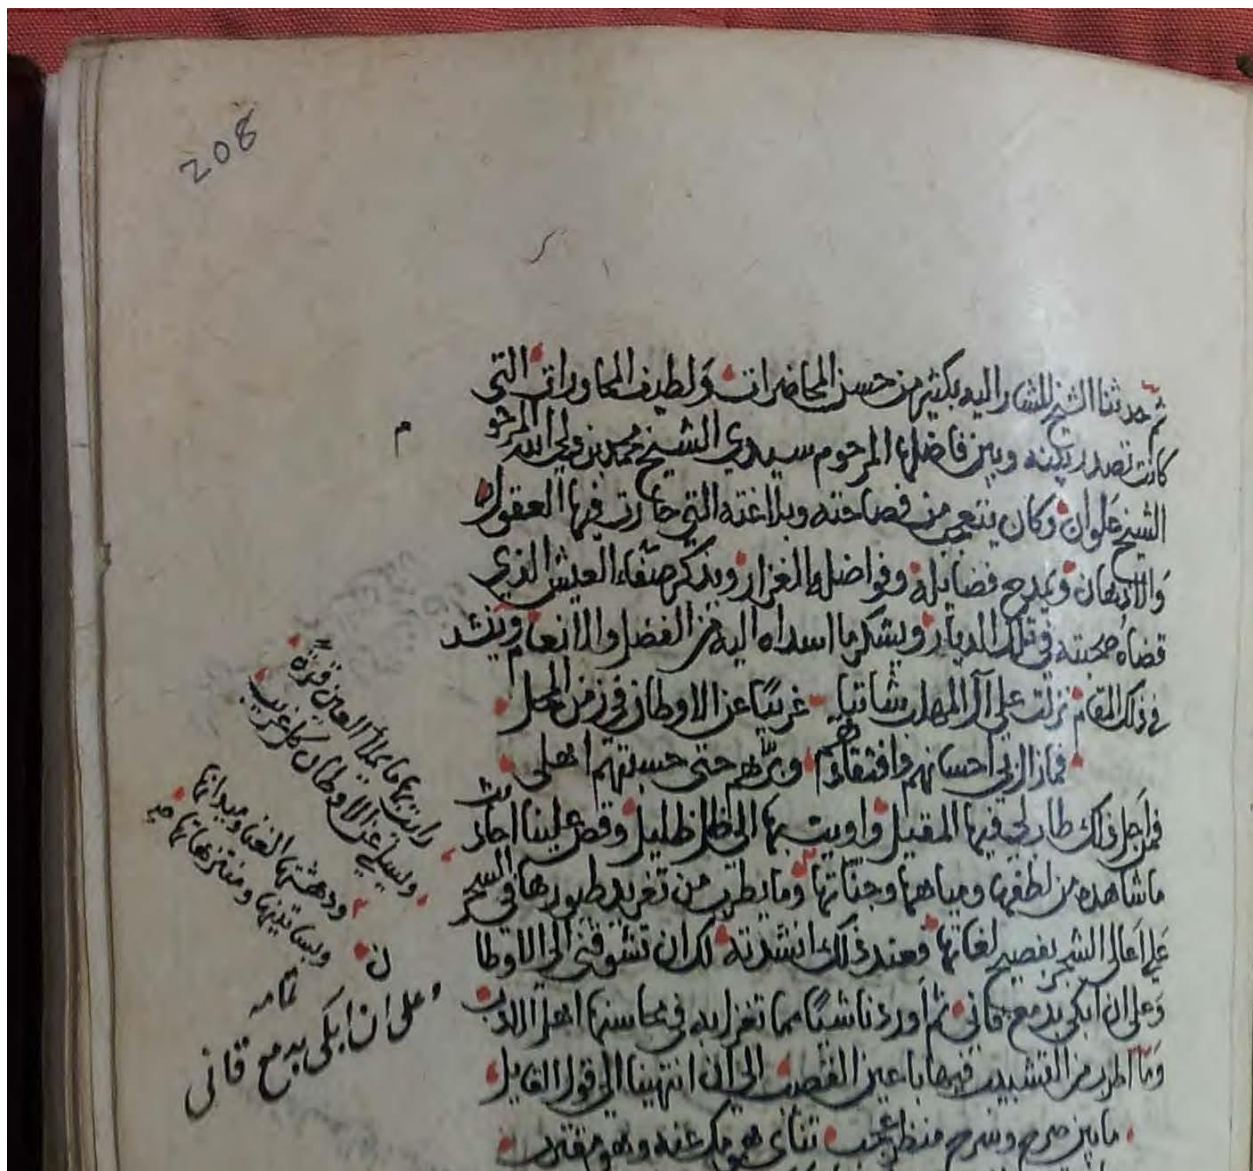 208
ثم حدثنا الشيخ المشار اليه بكثير من حسن المحاضرات ولطيف المحاورات التي
كانت تصدر بينه وبين فاضلها المرحوم سيدي الشيخ محمد بن ولي الله المرحو
م
الشيخ علوان وكان يتعجب من فصاحته وبلاغته التي حارت فيها العقول
والاذهان ويمدح فضائله وفواضله الغزار ويذكر صفاء العيش الذي
قضاه صحبته في تلك الديار ويشكر ما اسداه اليه من الفضل والانعام وينشد
في ذلك المقام نزلت على آل المهلب شاتيا غريبا عن الاوطان في زمن المحل
فمازال بي احسانهم وافتقادهم وبرهم حتى حسبتهم اهلي
فمن اجل ذلك طاب لي فيها المقيل واويت بها الى ظل ظليل وقص علينا احاديث
ما شاهده من لطفها ومياهها وجناتها وما يطرب من تغريد طيورها في السحر
على اعالى الشجر بفصيح لغاتها فعند ذلك انشدته لك ان تشوقني الى الاوطا
ن
وعلي ان ابكي بدمع قاني ثم اوردنا شيئا مما تغزل به في محاسنها اهل الادب
وما اطرب من التشبيب فيها باعين القصب الى ان انتهينا الى قول القايل
ما بين صرح وسرح منظر عجب تنائ هم عنه وهو مقترب
رايت بها ما يملأ العين قرة
ويسلي عن الاوطان كل غريب
ودهشتها الغنا وميدانها
وبساتينها ومنتزهاتها
تمامه
وعلي ان ابكي بدمع قاني